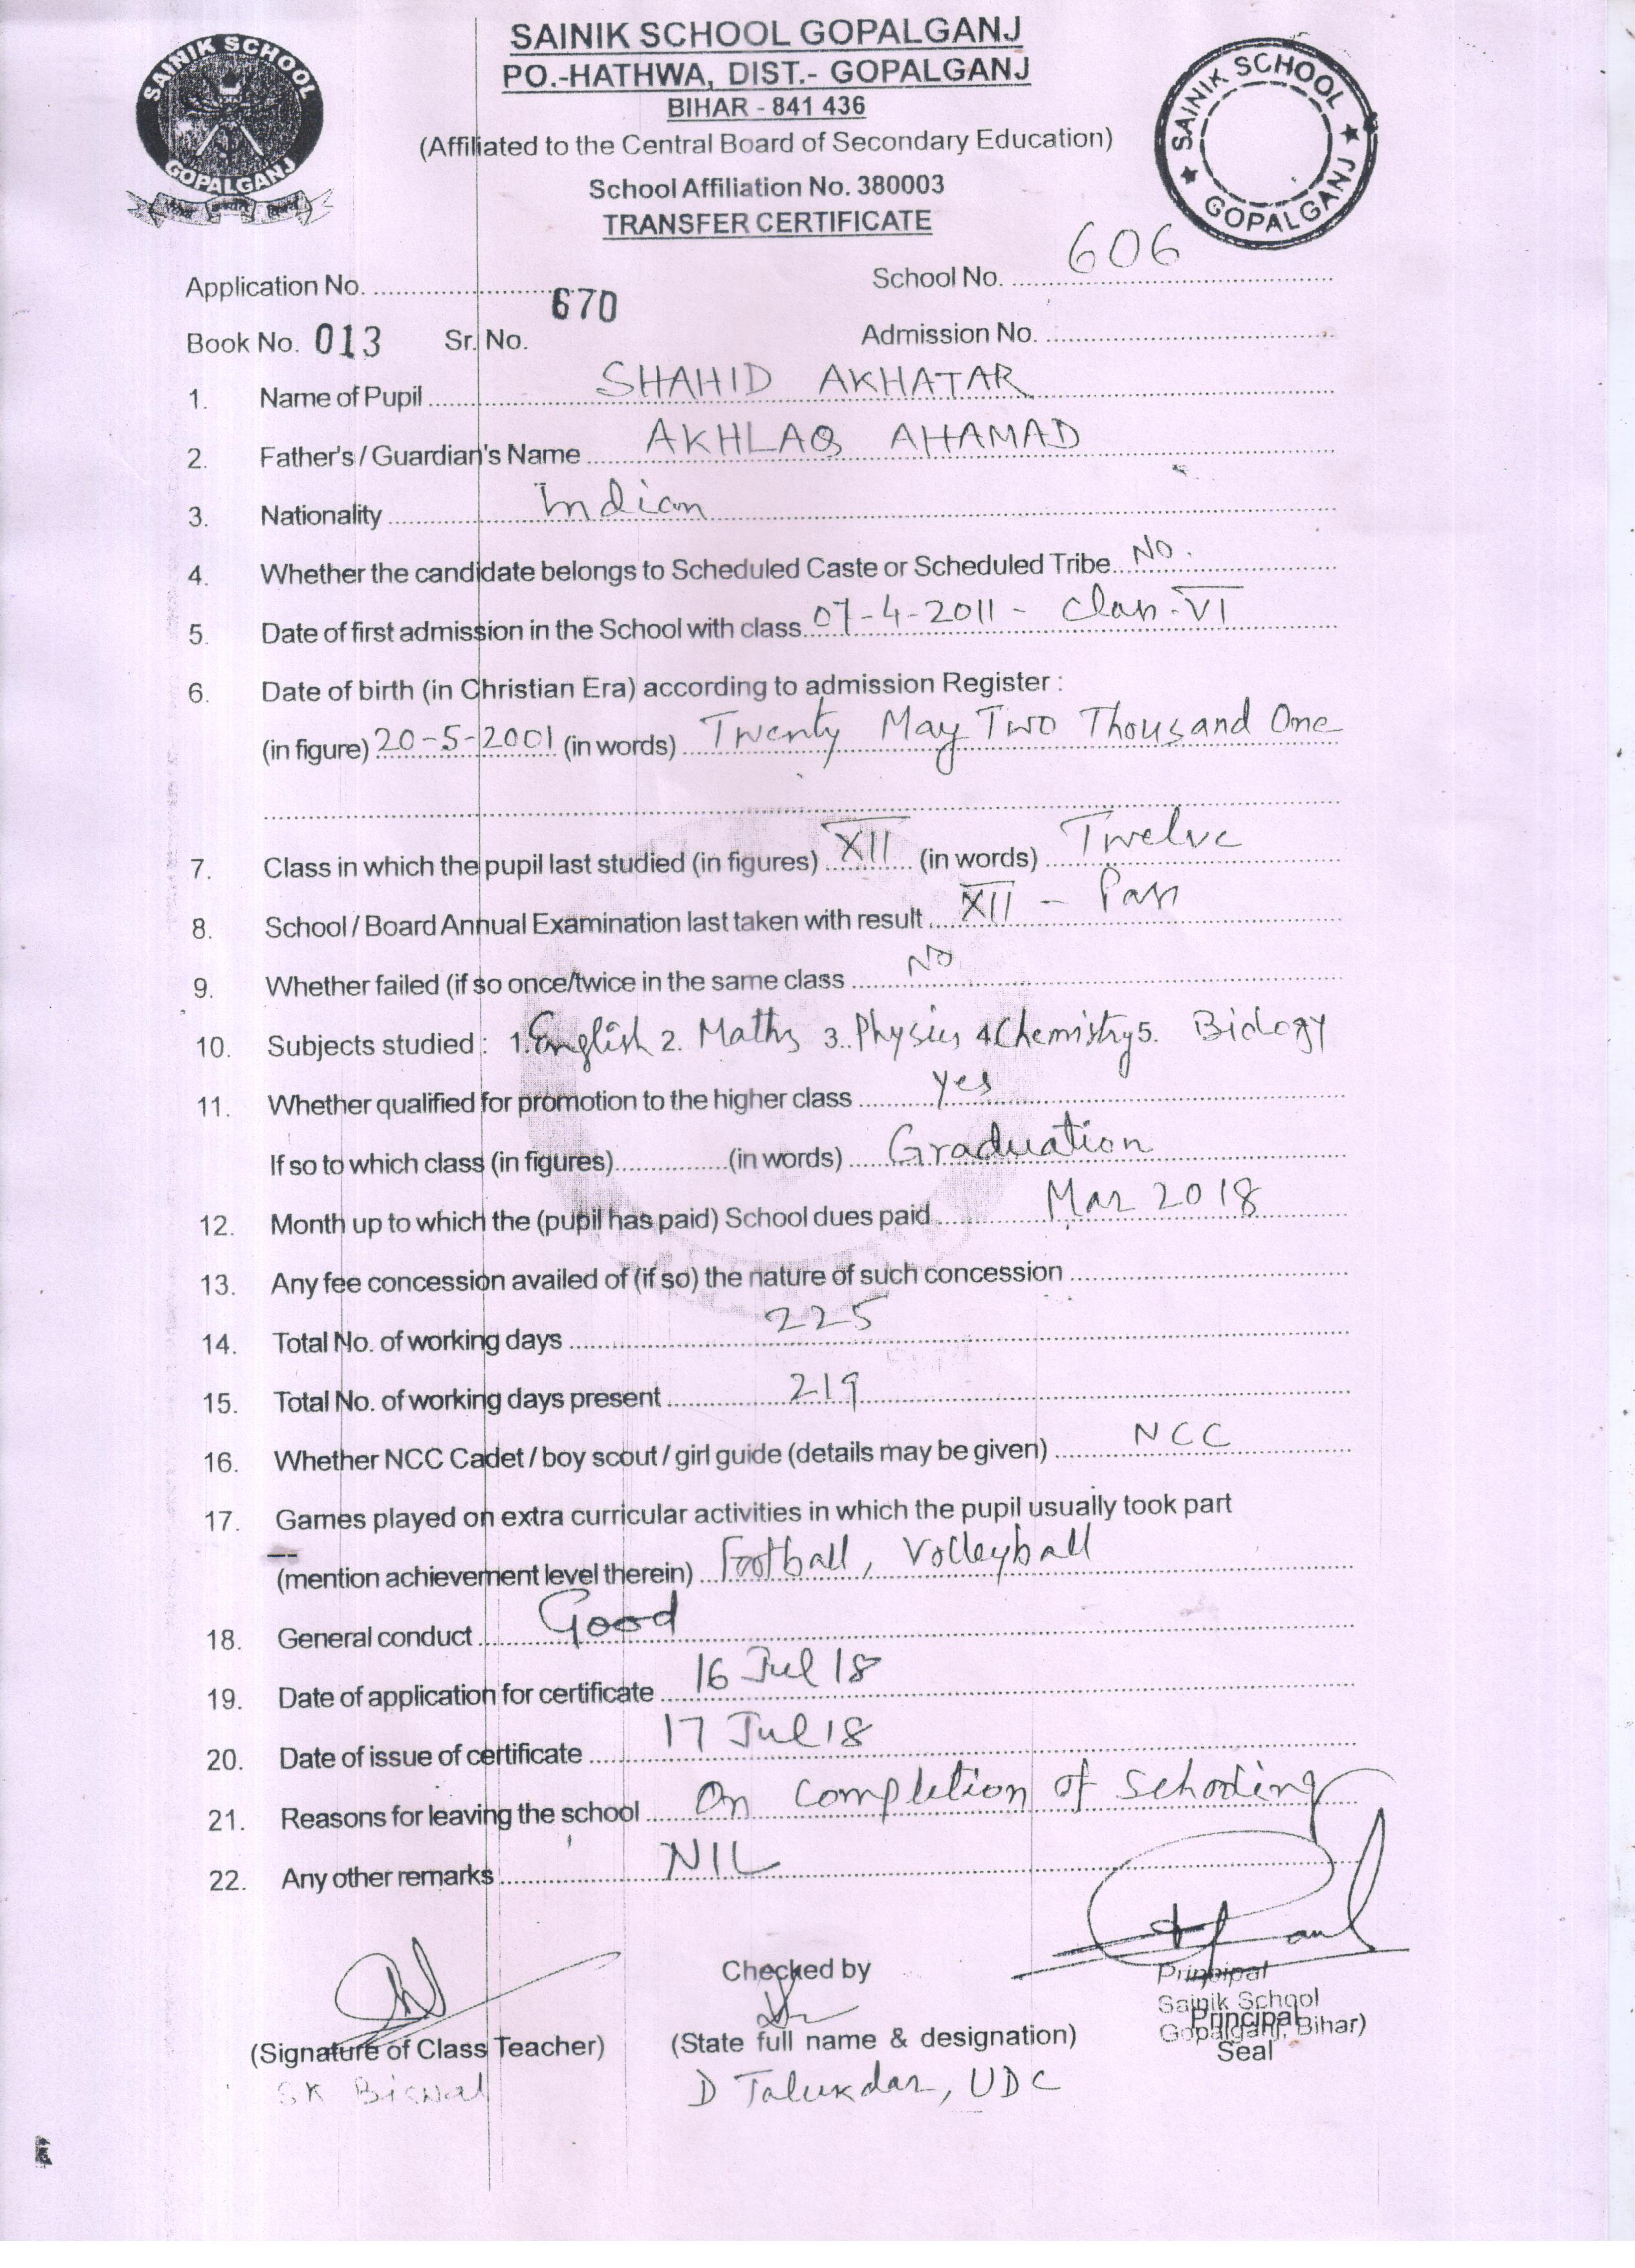 SAINIK SCHOOL GOPALGANJ
SAINIK SCHOOL GOPALGANJ
PO.-HATHWA, DIST.- GOPALGANJ
BIHAR - 841 436
(Affiliated to the Central Board of Secondary Education)
School Affiliation No. 380003
TRANSFER CERTIFICATE
SAINIK SCHOOL GOPALGANJ
Application No. School No. 606
Book No. 013 Sr. No. 670 Admission No.
1. Name of Pupil SHAHID AKHATAR
2. Father's / Guardian's Name AKHLAQ AHAMAD
3. Nationality Indian
4. Whether the candidate belongs to Scheduled Caste or Scheduled Tribe No.
5. Date of first admission in the School with class 07-4-2011 - Class-VI
6. Date of birth (in Christian Era) according to admission Register :
(in figure) 20-5-2001 (in words) Twenty May Two Thousand One
7. Class in which the pupil last studied (in figures) XII (in words) Twelve
8. School / Board Annual Examination last taken with result XII - Pass
9. Whether failed (if so once/twice in the same class No
10. Subjects studied : 1. English 2. Maths 3. Physics 4. Chemistry 5. Biology
11. Whether qualified for promotion to the higher class yes
If so to which class (in figures) (in words) Graduation
12. Month up to which the (pupil has paid) School dues paid Mar 2018
13. Any fee concession availed of (if so) the nature of such concession
14. Total No. of working days 225
15. Total No. of working days present 219
16. Whether NCC Cadet / boy scout / girl guide (details may be given) NCC
17. Games played on extra curricular activities in which the pupil usually took part
(mention achievement level therein) Football, Volleyball
18. General conduct Good
19. Date of application for certificate 16 Jul 18
20. Date of issue of certificate 17 Jul 18
21. Reasons for leaving the school On completion of schooling
22. Any other remarks NIL
Checked by
Principal
Sainik School
Principal
Gopalganj, Bihar)
(Signature of Class Teacher) (State full name & designation) Seal
SK Biswal D Talukdar, UDC